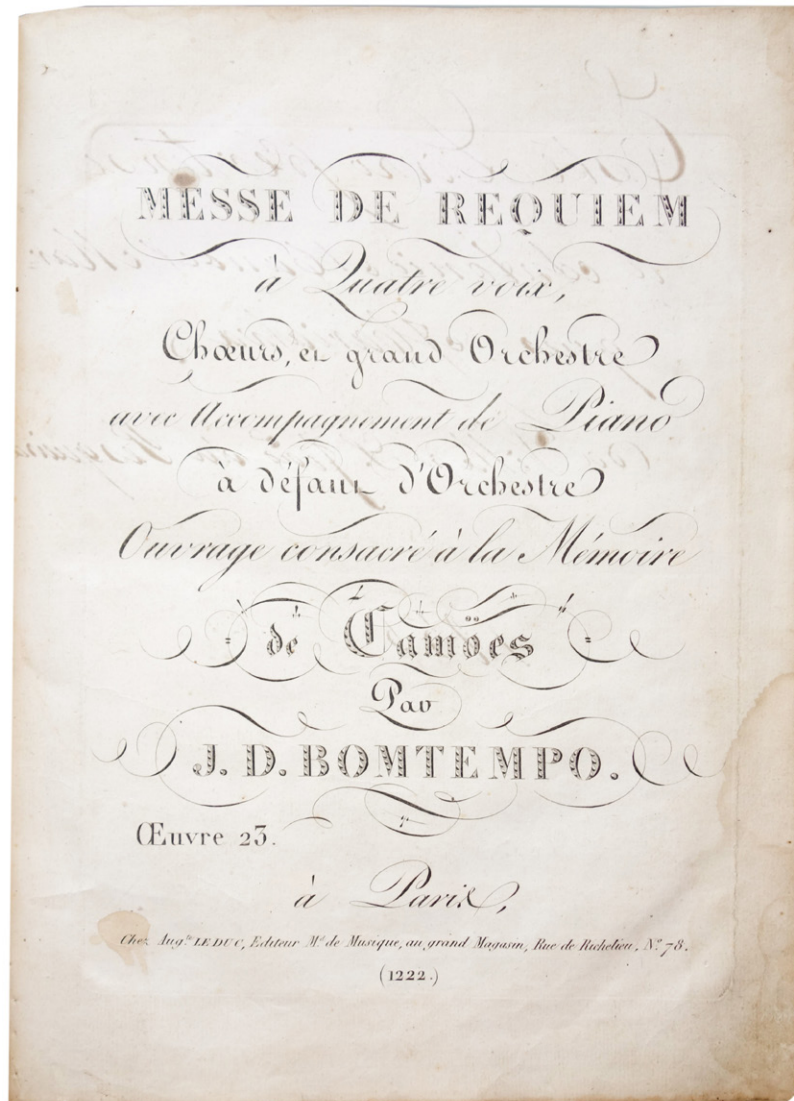 MESSE DE REQUIEM
à Quatre voix,
Chœurs, et grand Orchestre
avec Accompagnement de Piano
à défaut d'Orchestre
Ouvrage consacré à la Mémoire
de Camöes
Par
J. D. BOMTEMPO.
Œuvre 23.
à Paris,
Chez Aug.te LE DUC, Editeur M.d de Musique, au grand Magasin, Rue de Richelieu, N.º 78.
(1222.)